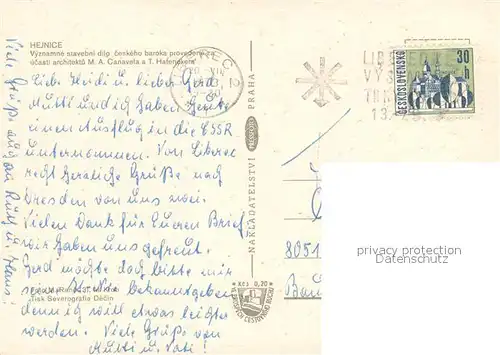 HEJNICE
Významné stavební dílo českého baroka provedeno za
účasti architektů M. A. Canavela a T. Hafeneckera
Liebe Heidi u. lieber Gerd
Mutti und ich haben heute
einen Ausflug in die ČSSR
unternommen. Von Liberec
recht herzliche Grüße nach
Dresden von uns zwei.
Vielen Dank für Eueren Brief
wir haben uns gefreut.
Gerd möchte doch bitte mir
seine Kt. Nr. bekanntgeben
denn ich will etwas leichter
werden. Viele Grüße von
Mutti u. Vati!
Viele Grüße auch an Ruth u. Hans!
Tisk Severografia Děčín
NAKLADATELSTVÍ PRESSFOTO PRAHA
Kčs 0,20
LIB
VÝS
13.
ČESKOSLOVENSKO
30 h
8051
privacy protection
Datenschutz